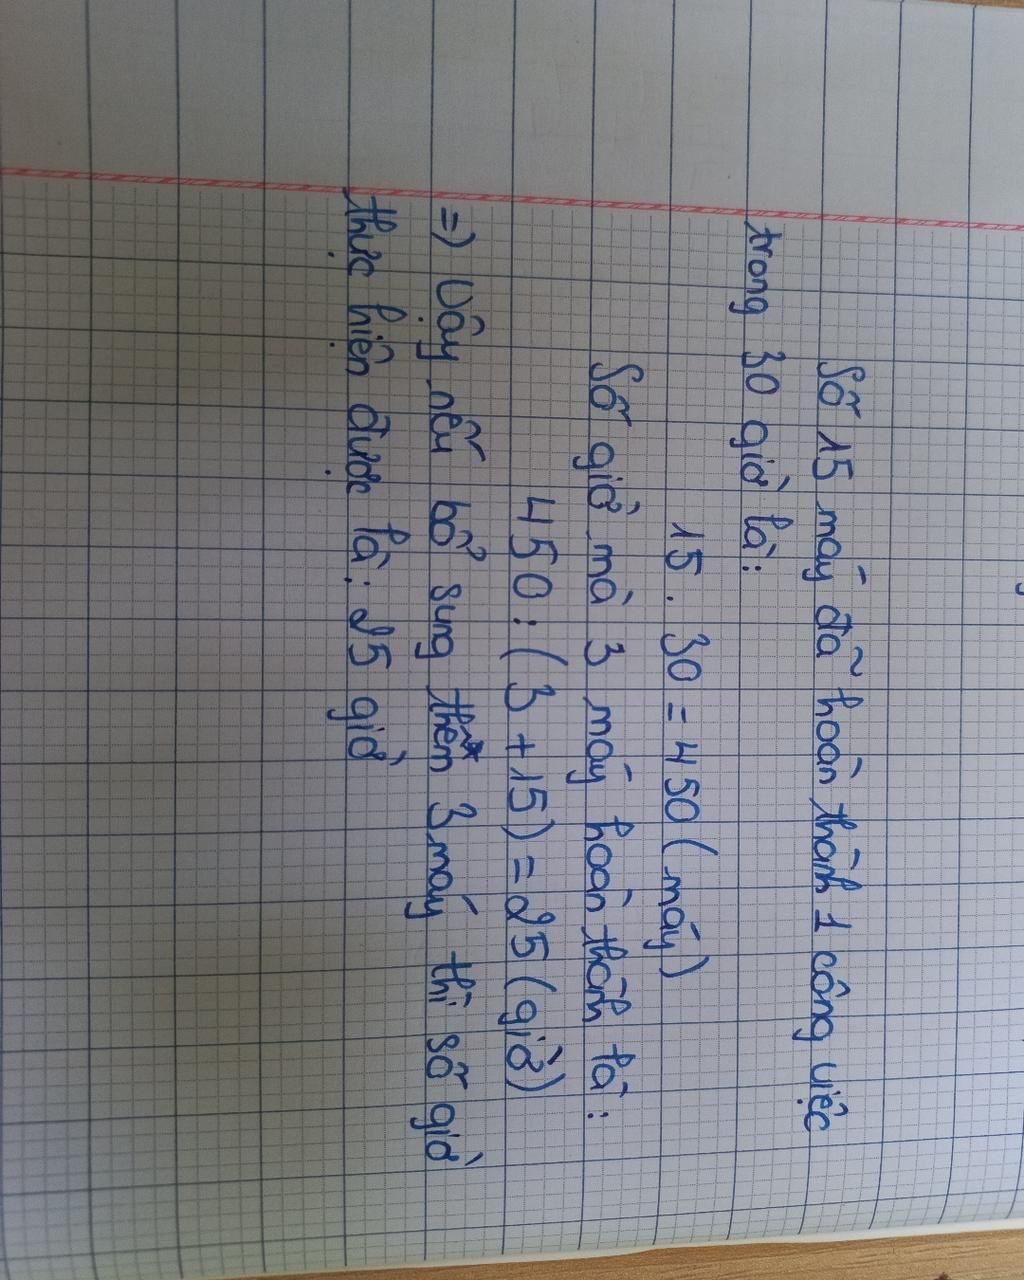 Số 15 máy đã hoàn thành 1 công việc
trong 30 giờ là:
15 . 30 = 450 (máy)
Số giờ mà 3 máy hoàn thành là:
450 : (3 + 15) = 25 (giờ)
=) Vậy nếu bổ sung thêm 3 máy thì số giờ
thực hiện được là: 25 giờ